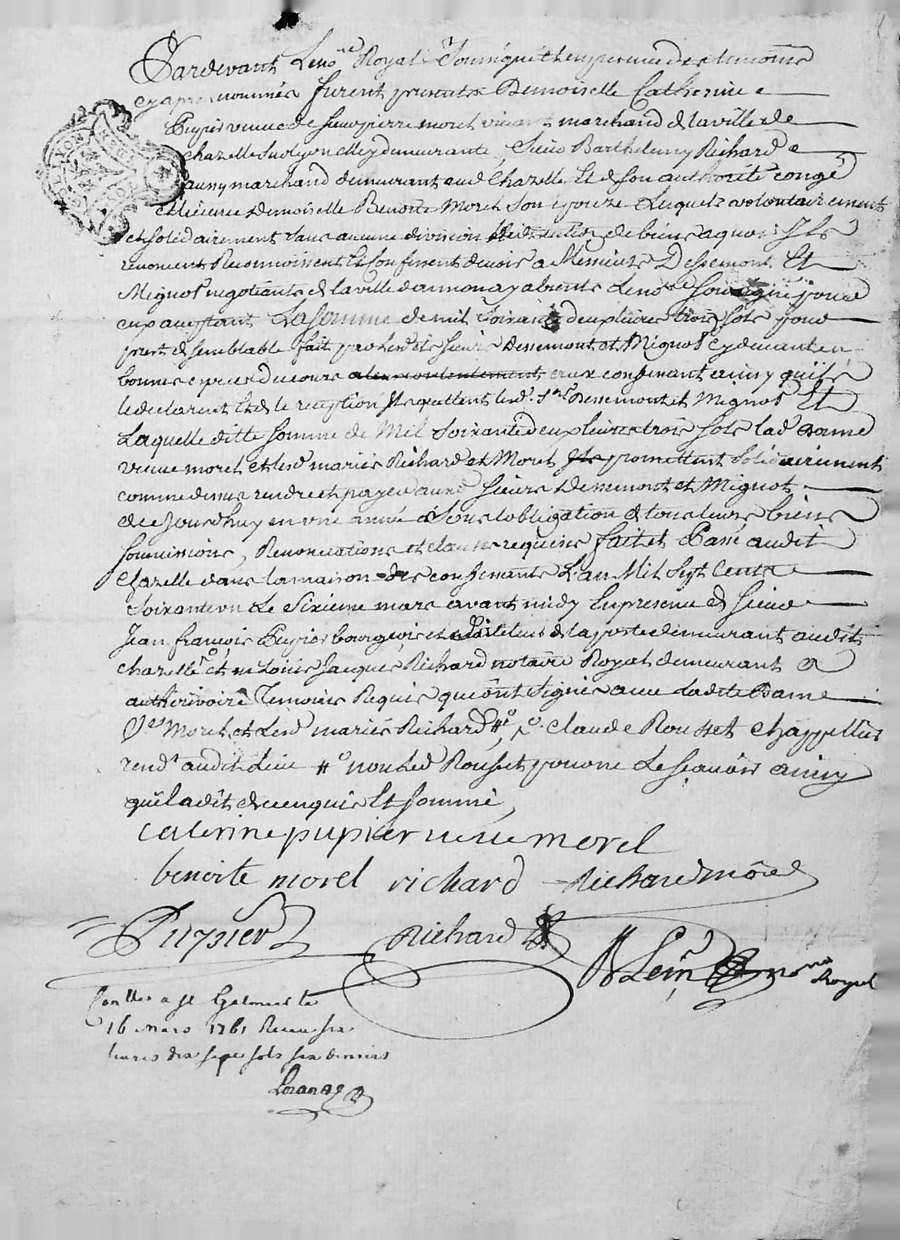 Pardevant Leno.re Royal Soussigné & en presence des temoins
cy apres nommés furent presents Demoiselle Catherine
Pupier veuve de sieur pierre morel vivant marchand de la ville de
chazelle sur lyon elle y demeurante, Sieur Barthelemy Richard
aussy marchand demeurant aud Chazelle Et de son authorité congé
& licence Demoiselle Benoite Morel son epouze Lesquels volontairement
et solidairement sans aucune division de biens a quoi Ils
renoncent Reconnoissent & confessent devoir a Messieurs Dessemont Et
Mignot negotiants de la ville d'annonay absents Leno.re soussigné pour
eux acceptant La somme de mil soixante deux livres trois sols pour
prest de semblable fait par lesd sieurs Dessemont et Mignot cy devant en
bonnes especes du cours a leur contentement ceux confessant ainsy qu'ils
le declarent & de la reception Ils quittent lesd. Srs Dessemont et Mignot Et
Laquelle ditte somme de Mil soixante deux livres trois sols lad Dame
veuve morel et lesd mariés Richard et Morel Ils promettent solidairement
comme dessus rendre et payer auxd sieurs Dessemont et Mignot
de ce Jourdhuy en une année a sous l'obligation de tous leurs biens
soumissions, Renonciations et clauses requises fait et Passé audit
Chazelle dans la maison des confessants L'an Mil Sept Cents
Soixante un Le Sixieme mars avant midy En presence de sieur
Jean françois Pupier bourgeois et directeur de la poste demeurant audit
chazelle et me Louis Jacques Richard notaire Royal demeurant a
Temoins Requis qui ont signé avec ladite Dame
Ve Morel et Lesd mariés Richard, & Claude Rousset chappellier
rend. audit Lieu non led Rousset pour ne le scavoir ainsy
quil a dit de ce enquis Et sommé
caterine pupier veuve morel
benoite morel richard Richard morel
Pupier Richard
nore
Royal
Con.llé a St Galmier le
16 mars 1761 Receu six
livres dix sept sols six deniers